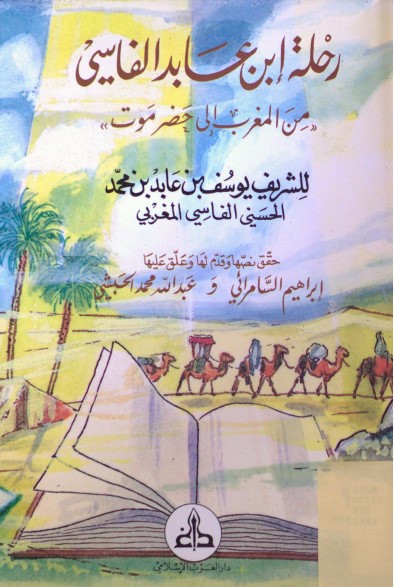 رحلة إبن عابد الفاسي
«من المغرب إلى حضرموت»
للشريف يوسف بن عابد بن محمد
الحسني الفاسي المغربي
حقق نصها وقدم لها وعلق عليها
إبراهيم السامرائي و عبدالله محمد الحبشي
دار الغرب الإسلامي